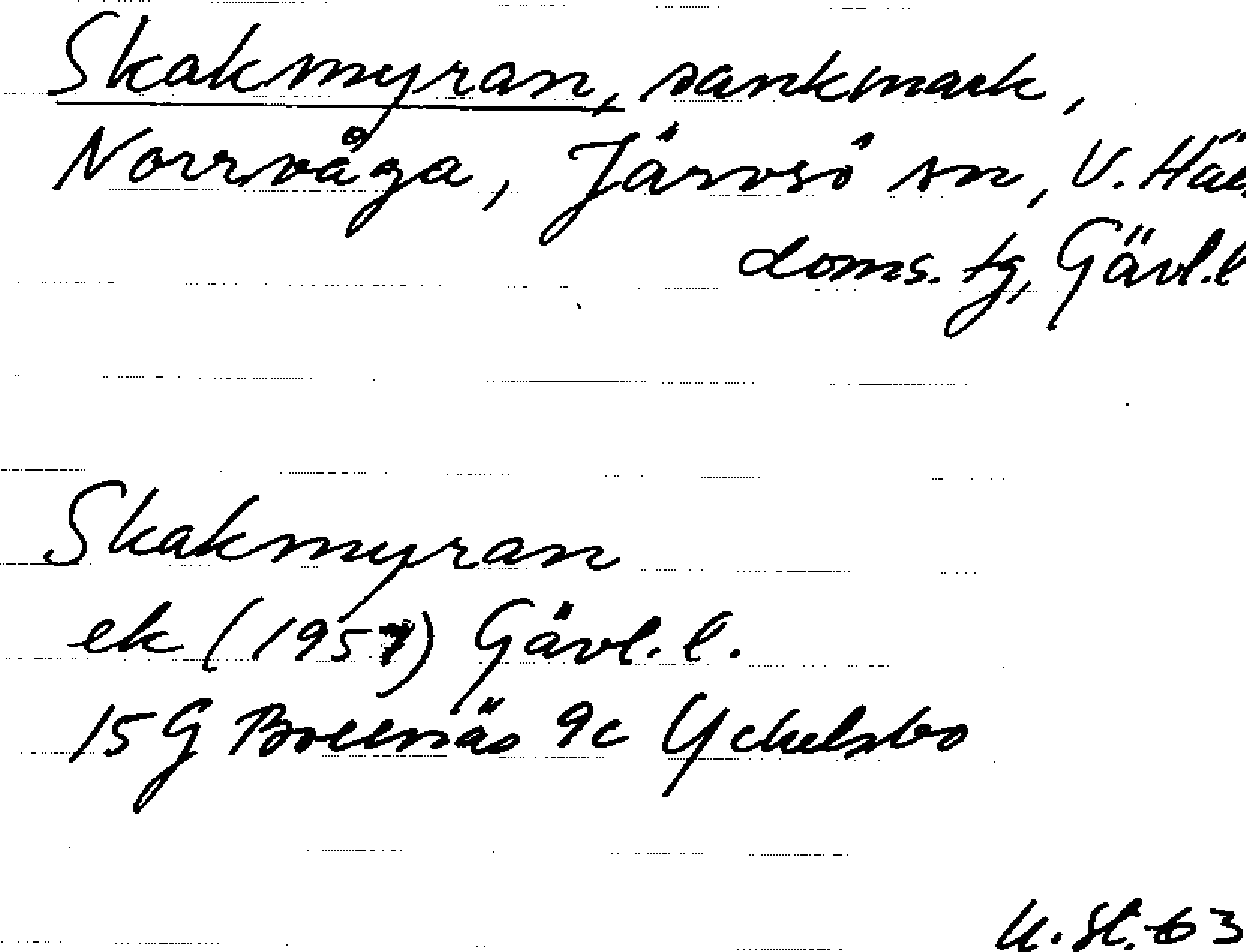 Skakmyran, sankmark,
Norrvåga, Järvsö sn, V. Häl
doms. tg, Gävl.l
Skakmyran
ek (1957) Gävl. l.
15G Bollnäs 9c Yckelsbo
U. St. 63